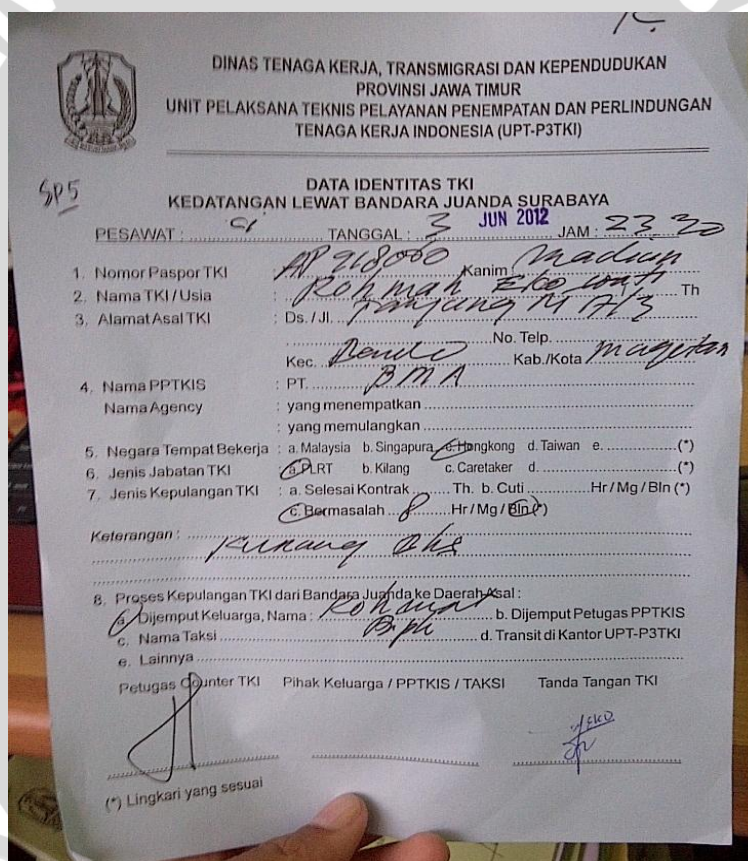 DINAS TENAGA KERJA, TRANSMIGRASI DAN KEPENDUDUKAN
PROVINSI JAWA TIMUR
UNIT PELAKSANA TEKNIS PELAYANAN PENEMPATAN DAN PERLINDUNGAN
TENAGA KERJA INDONESIA (UPT-P3TKI)
SP5
DATA IDENTITAS TKI
KEDATANGAN LEWAT BANDARA JUANDA SURABAYA
PESAWAT : TANGGAL : 3 JUN 2012 JAM : 23 30
1. Nomor Paspor TKI Kanim : Madiun
2. Nama TKI / Usia : Rohmah Eko Th
3. Alamat Asal TKI : Ds. / Jl. Tanjung
No. Telp.
Kec. Bendo Kab./Kota Magetan
4. Nama PPTKIS : PT. BMA
Nama Agency : yang menempatkan
: yang memulangkan
5. Negara Tempat Bekerja : a. Malaysia b. Singapura c. Hongkong d. Taiwan e. (*)
6. Jenis Jabatan TKI : a. PLRT b. Kilang c. Caretaker d. (*)
7. Jenis Kepulangan TKI : a. Selesai Kontrak Th. b. Cuti Hr / Mg / Bln (*)
c. Bermasalah 8 Hr / Mg / Bln (*)
Keterangan :
8. Proses Kepulangan TKI dari Bandara Juanda ke Daerah Asal :
a. Dijemput Keluarga, Nama : b. Dijemput Petugas PPTKIS
c. Nama Taksi d. Transit di Kantor UPT-P3TKI
e. Lainnya
Petugas Counter TKI Pihak Keluarga / PPTKIS / TAKSI Tanda Tangan TKI
(*) Lingkari yang sesuai